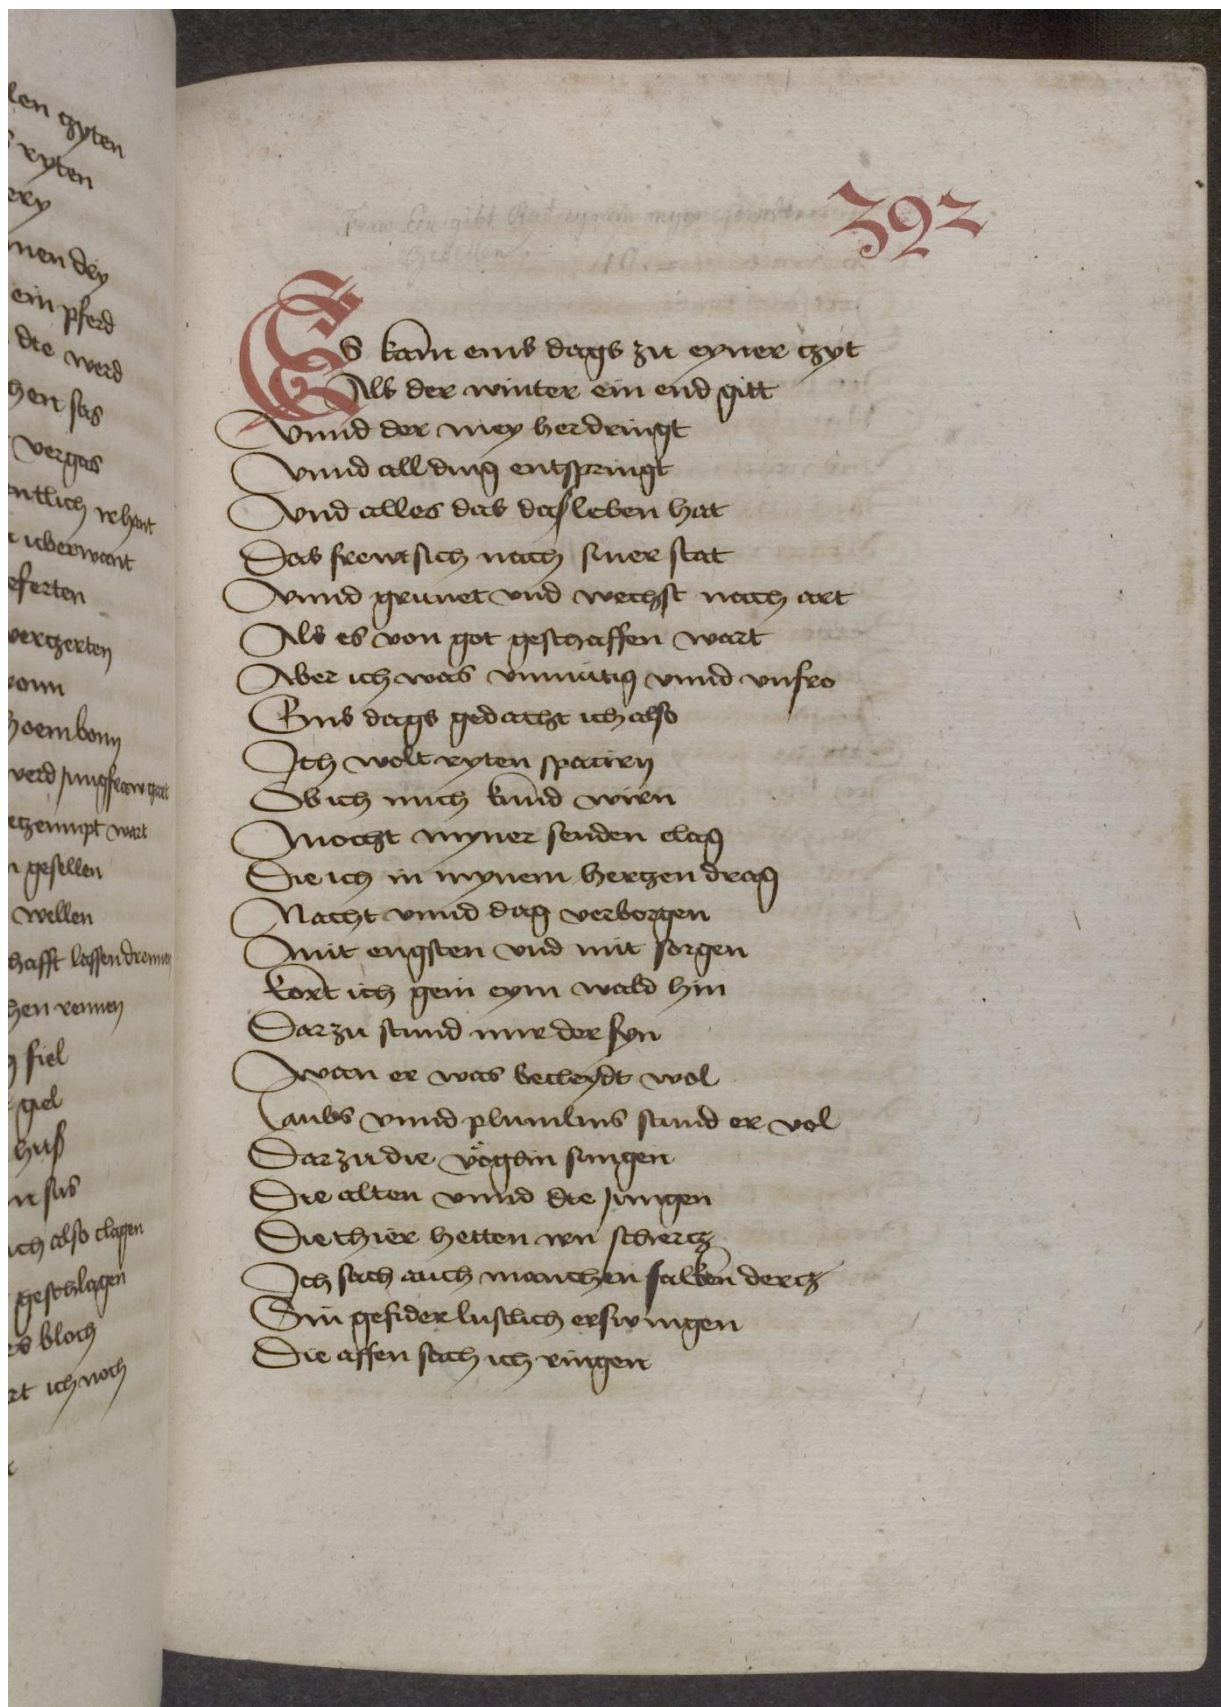 len zyten
ryten
ery
nen dry
ein pferd
die werd
hen sas
vergas
ntlich rehant
uberwant
eferten
verczerten
onn
boembonn
werd jungfraw zart
gezempt wart
n gesellen
wellen
hafft lassen drennen
hen rennen
fiel
giel
huß
n sus
ich also clagen
geschlagen
es bloch
rt ich noch
392
Fraw Eer gibt Rat eynem
Gesellen
Es kam eins dags zu eyner czyt
Als der winter ein end gitt
Vnnd der mey herdringt
Vnnd all ding entspringt
Vnd alles das daß leben hat
Das frewt sich nach siner stat
Vnnd grunet vnd wechst nach art
Als es von got geschaffen wart
Aber ich was vnmutig vnnd vnfro
Eins dags gedacht ich also
Ich wolt ryten spaciren
Ob ich mich kund wirn
Mocht myner senden clag
Die ich in mynem hertzen drag
Nacht vnnd dag verborgen
Mit engsten vnd mit sorgen
Kort ich gein eym wald hin
Dar zu stund mir der syn
Wan er was becleydt wol
Laubs vnnd plumlins stund er vol
Dar zu die vöglin sungen
Die alten vnnd die jungen
Die thier hetten irn schercz
Ich sach auch manchen falken dercz
Sin gefider lustlich erswingen
Die affen sach ich ringen